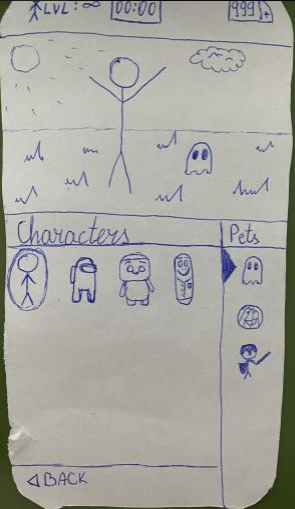 LVL: ∞ 00:00 999+
Characters Pets
BACK